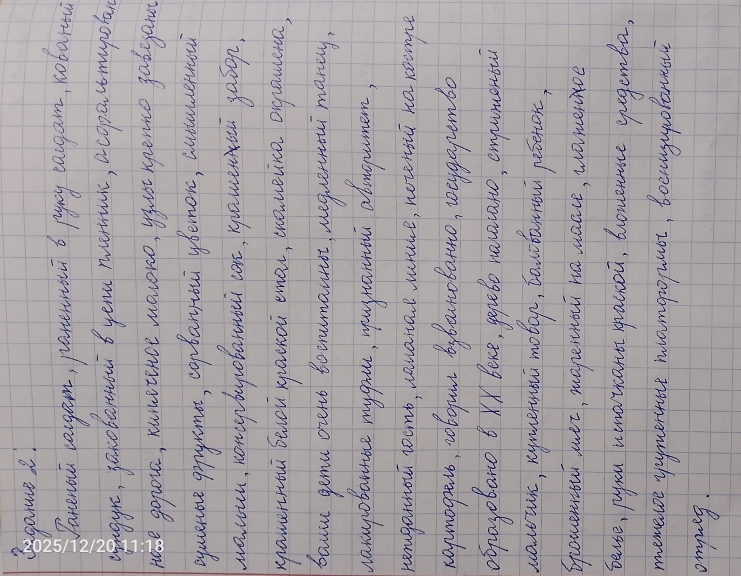 Задание 2.
Раненый солдат, раненный в руку солдат, кованый
сундук, закованный в цепи пленник, асфальтирован
ная дорога, кипяченое молоко, узлы крепко завязаны
сушеные фрукты, сорванный цветок, смышленый
малыш, консервированный сок, крашеный забор,
крашенный белой краской стол, скамейка окрашена,
ваши дети очень воспитанны, медленный танец,
лакированные туфли, признанный авторитет,
нежданный гость, ломаная линия, печеный на костре
картофель, говорил взволнованно, государство
образовано в XX веке, дерево сломано, стриженый
мальчик, купленный товар, балованный ребенок,
брошенный мяч, жаренный на масле, глаженое
белье, руки испачканы краской, вложенные средства,
тяжело груженные платформы, военизированный
отряд.
2025/12/20 11:18